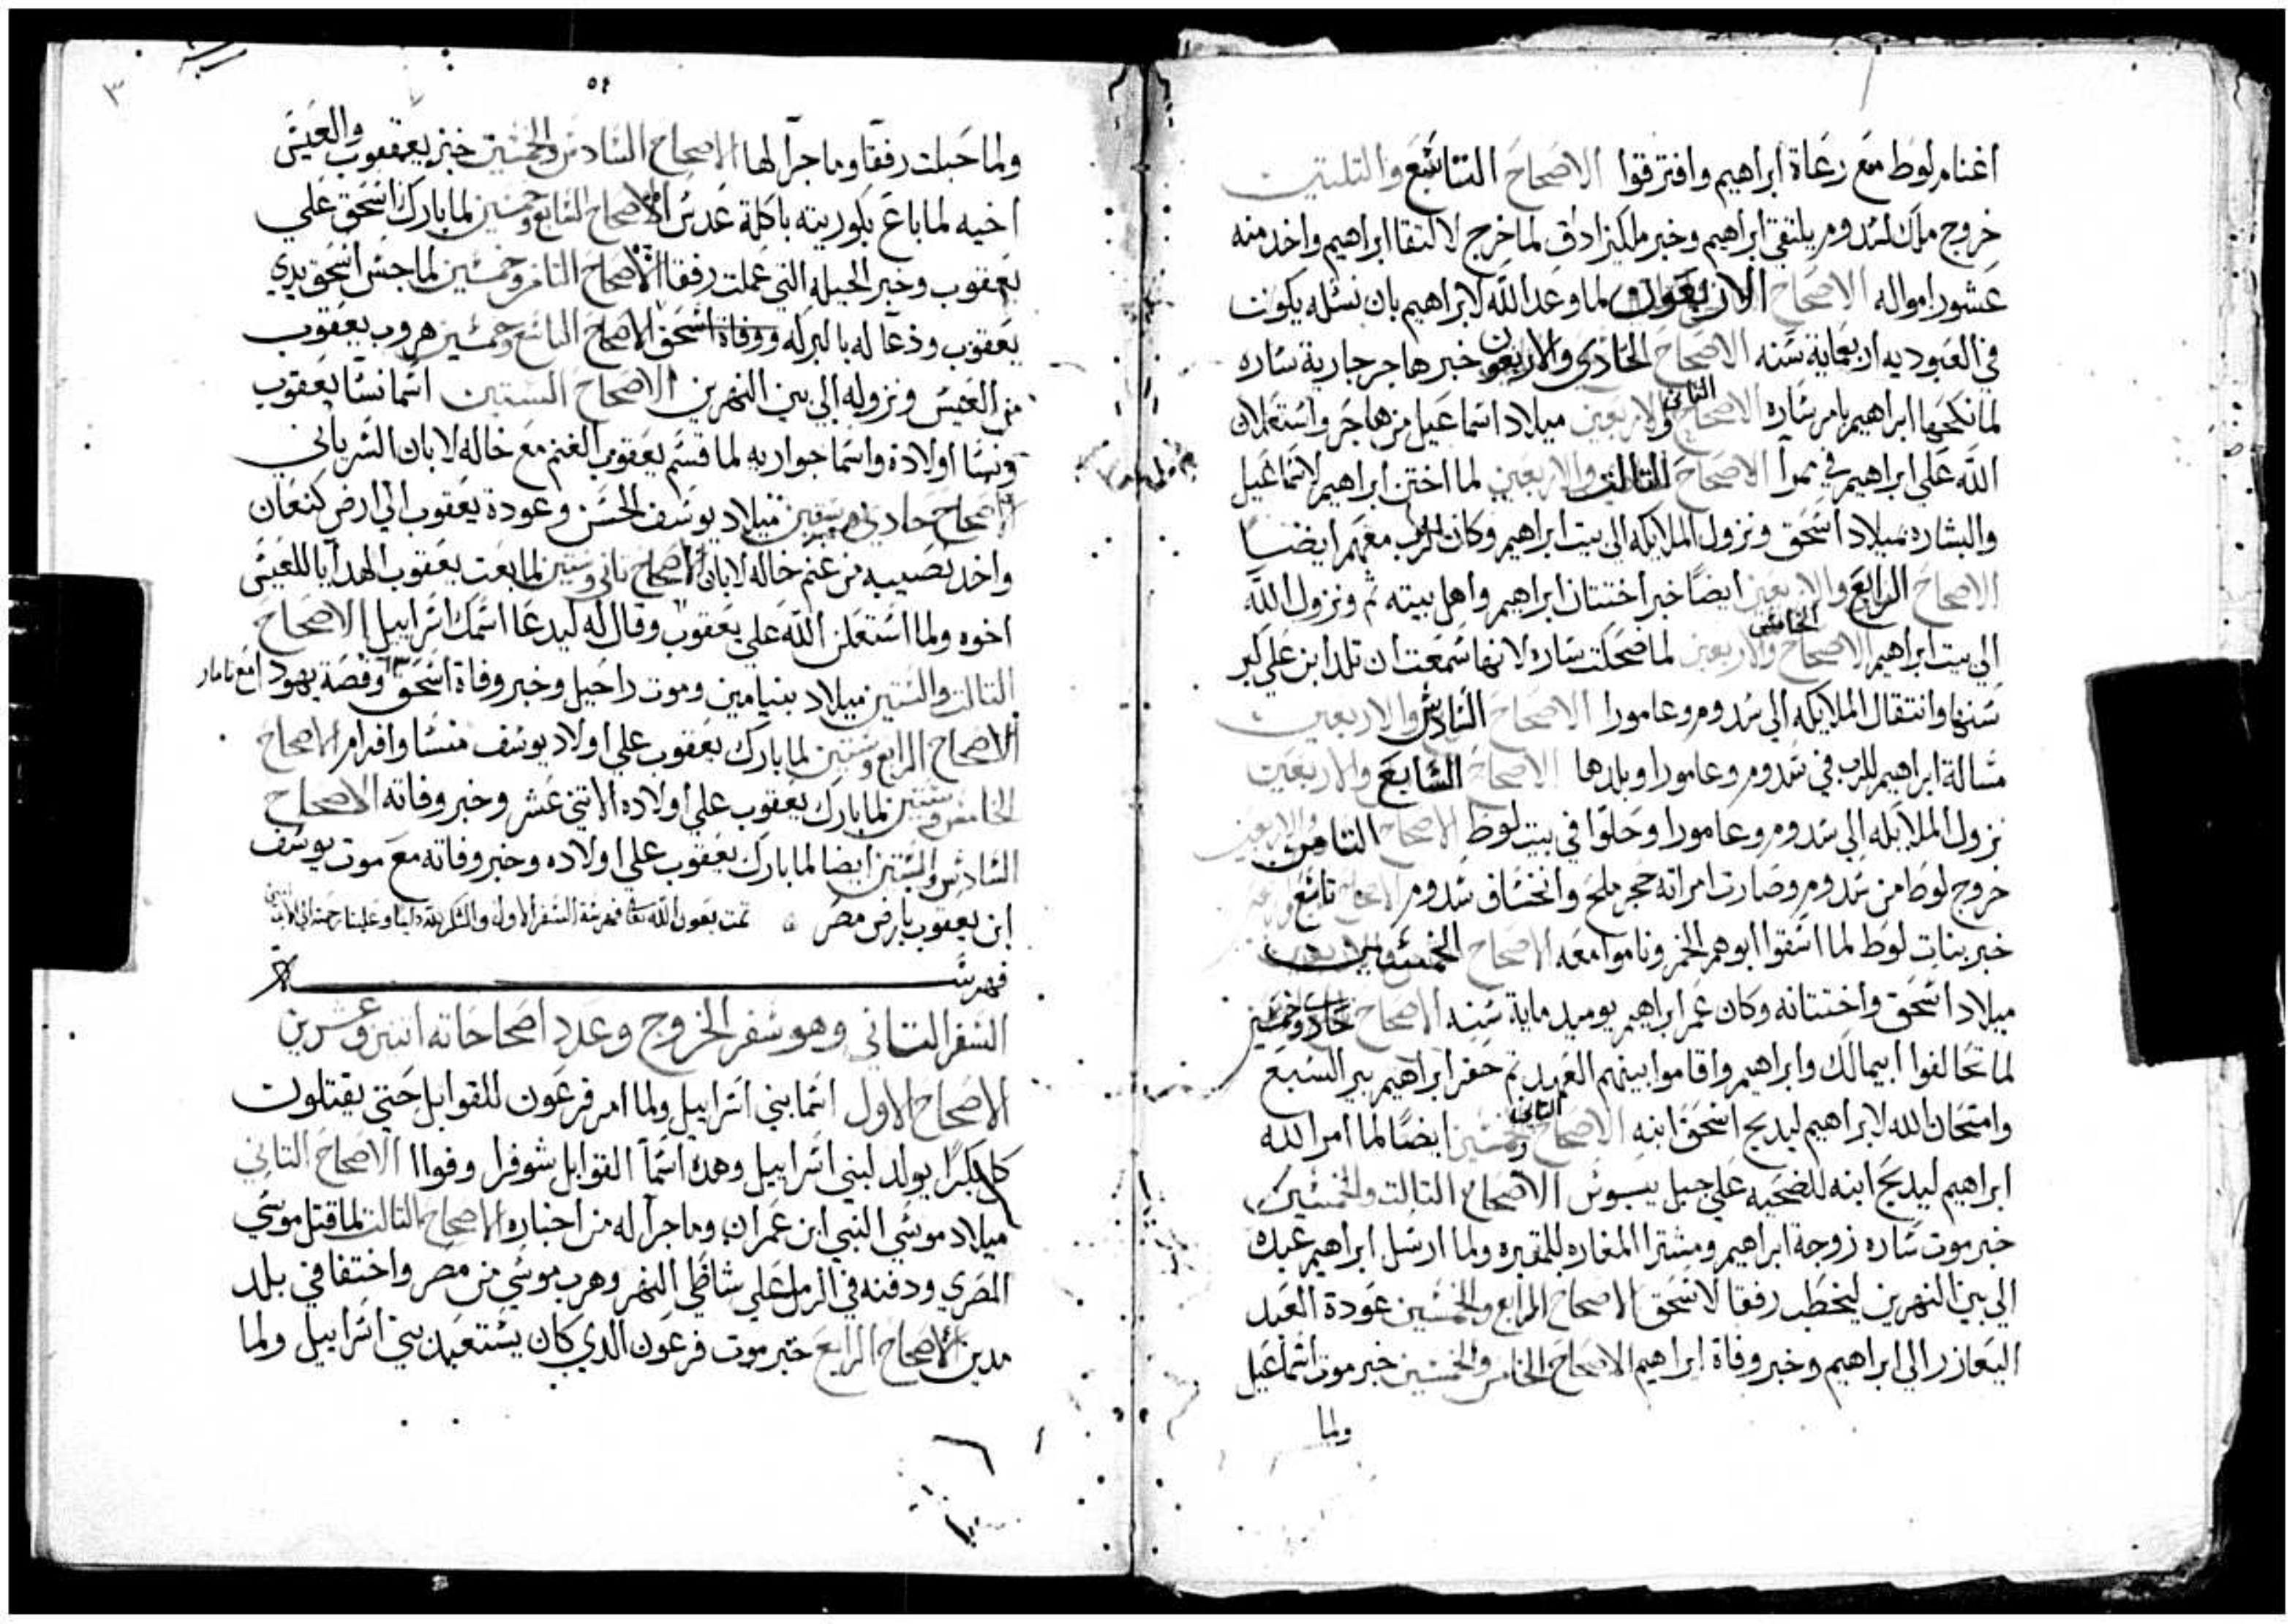 اغنام لوط مع رعاة ابراهيم وافترقوا الاصحاح التاسع والتلتين
خروج ملك سدوم يلتقي ابراهيم وخبر ملكيزادق لما خرج لالتقا ابراهيم واخد منه
عشور امواله الاصحاح الاربعون لما وعد الله لابراهيم بان نسله يكون
في العبوديه اربعماية سنه الاصحاح الحادي والاربعون خبر هاجر جارية ساره
لما نكحها ابراهيم بامر ساره الاصحاح التاني والاربعين ميلاد اسماعيل من هاجر واستعلان
الله على ابراهيم في ممرا الاصحاح التالت والاربعين لما اختن ابراهيم لاسماعيل
والبشاره بميلاد اسحق ونزول الملايكه الي بيت ابراهيم وكان الرب معهم ايضا
الاصحاح الرابع والاربعين ايضا خبر اختتان ابراهيم واهل بيته تم ونزول الله
الي بيت ابراهيم الاصحاح الخامس والاربعين لما ضحكت ساره لانها سمعت ان تلد ابن علي كبر
سنها وانتقال الملايكه الي سدوم وعامورا الاصحاح السادس والاربعين
مسالة ابراهيم للرب في سدوم وعامورا وبلدها الاصحاح السابع والاربعين
نزول الملايكه الي سدوم وعامورا وحلوا في بيت لوط الاصحاح التامن والاربعين
خروج لوط من سدوم وصارت امراته حجر ملح وانخساف سدوم الاصحاح تاسع واربعين
خبر بنات لوط لما اسقوا ابوهم الخمر وناموا معه الاصحاح الخمسين
ميلاد اسحق واختتانه وكان عمر ابراهيم يوميد ماية سنه الاصحاح حادي وخمسين
لما تحالفوا ابيمالك وابراهيم واقاموا بينهم العهد تم حفر ابراهيم بير السبع
وامتحان الله لابراهيم ليدبح اسحق ابنه الاصحاح التاني وخمسين ايضا لما امر الله
ابراهيم ليدبح ابنه للضحيه علي جبل يبوس الاصحاح التالت والخمسين
خبر موت ساره زوجة ابراهيم ومشترا المغاره للمقبره ولما ارسل ابراهيم عبده
الي بين النهرين ليخطب رفقا لاسحق الاصحاح الرابع والخمسين عودة العبد
اليعازر الي ابراهيم وخبر وفاة ابراهيم الاصحاح الخامس والخمسين خبر موت اسماعيل
ولما
٣
ولما حبلت رفقا وما جرا لها الاصحاح السادس والخمسين خبر يعقوب والعيس
اخيه لما باع بكوريته باكلة عدس الاصحاح السابع وخمسين لما بارك اسحق علي
يعقوب وخبر الحيله التي عملت رفقا الاصحاح التامن وخمسين لما جس اسحق يدي
يعقوب ودعا له بالبركه ووفاة اسحق الاصحاح التاسع وخمسين هروب يعقوب
من العيس ونزوله الي بين النهرين الاصحاح الستين اسما نسا يعقوب
ونسا اولاده واسما جواريه لما قسم يعقوب الغنم مع خاله لابان السرياني
الاصحاح حادي وستين ميلاد يوسف الحسن وعودة يعقوب الي ارض كنعان
واخد نصيبه من غنم خاله لابان الاصحاح تاني وستين لما بعت يعقوب الهدايا للعيس
اخوه ولما استعلن الله علي يعقوب وقال له ليدعا اسمك اسراييل الاصحاح
التالت والستين ميلاد بنيامين وموت راحيل وخبر وفاة اسحق وقصة يهودا مع تامار
الاصحاح الرابع وستين لما بارك يعقوب علي اولاد يوسف منسا وافرام الاصحاح
الخامس وستين لما بارك يعقوب علي اولاده الاتني عشر وخبر وفاته الاصحاح
السادس والستين ايضا لما بارك يعقوب علي اولاده وخبر وفاته مع موت يوسف
ابن يعقوب بارض مصر تمت بعون الله تعا فهرسة السفر الاول والشكر لله دايما وعلينا رحمته الي الابد امين
فهرسة
السفر التاني وهو سفر الخروج وعدد اصحاحاته اتنين وعشرين
الاصحاح الاول اسما بني اسراييل ولما امر فرعون للقوابل حتي يقتلون
كل بكرا يولد لبني اسراييل وهده اسما القوابل شوفرا وفوا الاصحاح التاني
ميلاد موسي النبي ابن عمران وما جرا له من اخباره الاصحاح التالت لما قتل موسي
المصري ودفنه في الرمل علي شاطي النهر وهرب موسي من مصر واختفا في بلد
مدين الاصحاح الرابع خبر موت فرعون الدي كان يستعبد بني اسراييل ولما